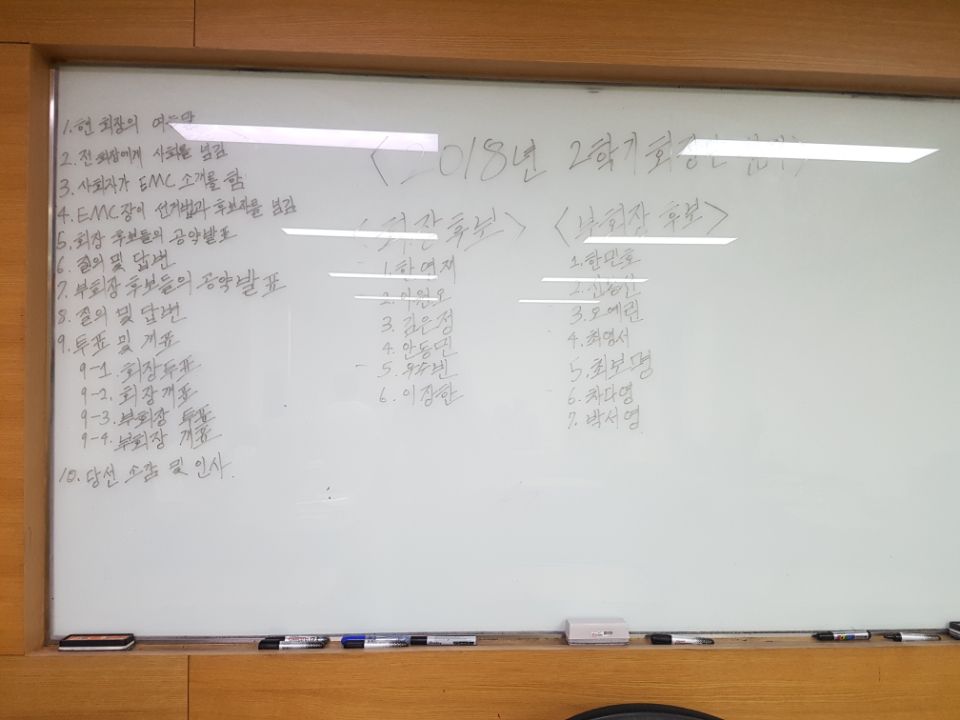 1. 현 회장의
2. 전 회장에게 사회를 넘김
3. 사회자가 EMC 소개를 함
4. EMC장이 선거법과 후보자를 넘김
5. 회장 후보들의 공약발표
6. 질의 및 답변
7. 부회장 후보들의 공약발표
8. 질의 및 답변
9. 투표 및 개표
9-1. 회장투표
9-2. 회장개표
9-3. 부회장 투표
9-4. 부회장 개표
10. 당선 소감 및 인사
<2018년 2학기 회장단
<회장 후보>
1. 한연재
2.
3. 김은정
4. 안동민
5.
6. 이장한
<부회장 후보>
1. 한민호
2.
3. 오예린
4. 최영서
5. 최보명
6. 차다영
7. 박서영